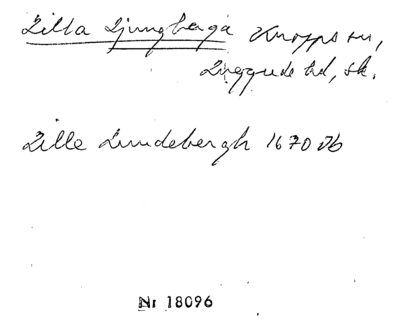 Lilla Ljunghaga Knopps sn,
Luggude hd, sk.
Lille Lundebergh 1670 Jb
Nr 18096